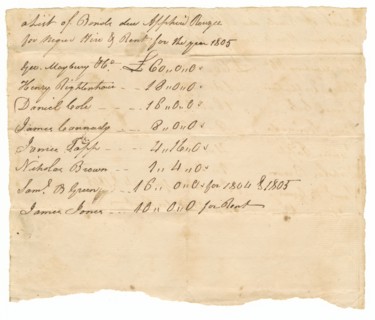 a List of Bonds due Alpheus
for Negro Hire & Rent for the year 1805
Geo. Maybury & Co £60,,0,,0
Henry - - 18,,0,,0
Daniel Cole - - 18,,0,,0
James - - 8,,0,,0
James Tapp - - 4,,16,,0
Nicholas Brown - - 1,,4,,0
Saml. B Green - - 16,,0,,0 for 1804 & 1805
James Jones - - 40,,0,,0 for Rent